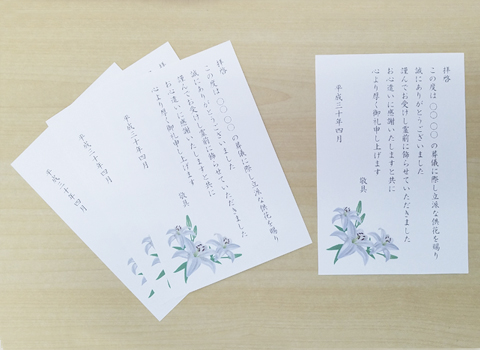 拝啓
この度は 〇〇 〇〇 の葬儀に際し立派な供花を賜り
誠にありがとうございました
謹んでお受けし霊前に飾らせていただきました
お心遣いに感謝いたしますと共に
心より厚く御礼申し上げます
敬具
平成三十年四月
拝啓
この度は 〇〇 〇〇 の葬儀に際し立派な供花を賜り
誠にありがとうございました
謹んでお受けし霊前に飾らせていただきました
お心遣いに感謝いたしますと共に
心より厚く御礼申し上げます
敬具
平成三十年四月
平成三十年四月
平成三十年四月